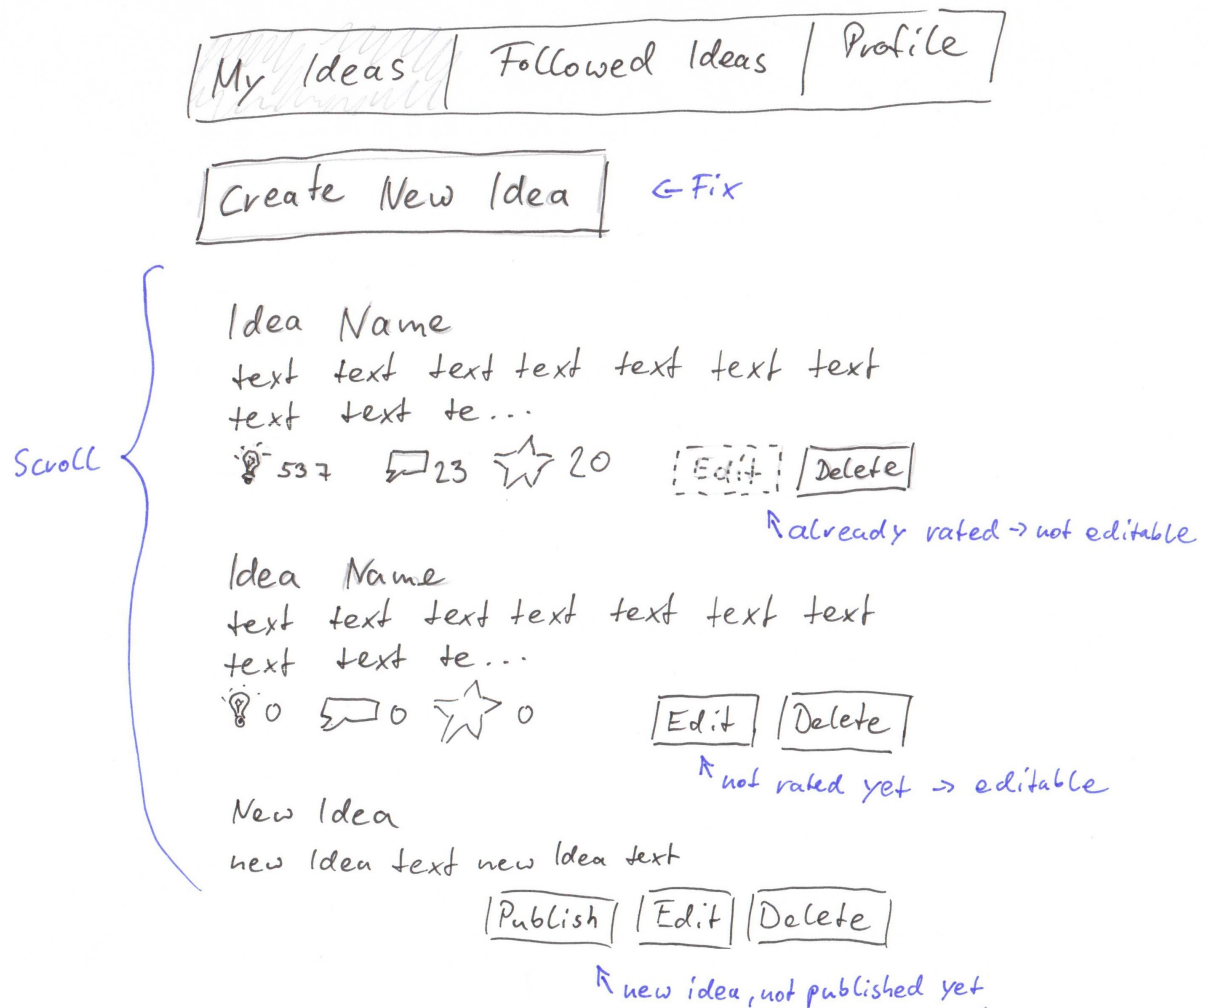 My Ideas Followed Ideas Profile
Create New Idea ← Fix
Idea Name
text text text text text text text
text text te...
Scroll
537 23 20 Edit Delete
already rated → not editable
Idea Name
text text text text text text text
text text te...
0 0 0 Edit Delete
not rated yet → editable
New Idea
new Idea text new Idea text
Publish Edit Delete
new idea, not published yet